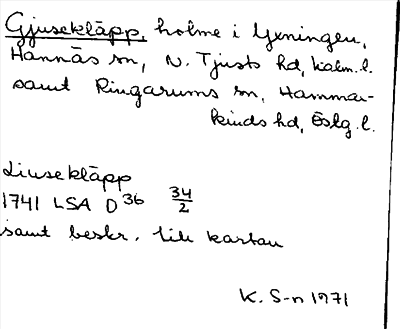 Gjuseklapp, holme i Yxningen,
Hannäs sn, N. Tjusts hd, Kalm. l.
samt Ringarums sn, Hammar-
kinds hd, Östg. l.
Liuseklapp
1741 LSA D36 34/2
samt beskr. till kartan
K. S-n 1971